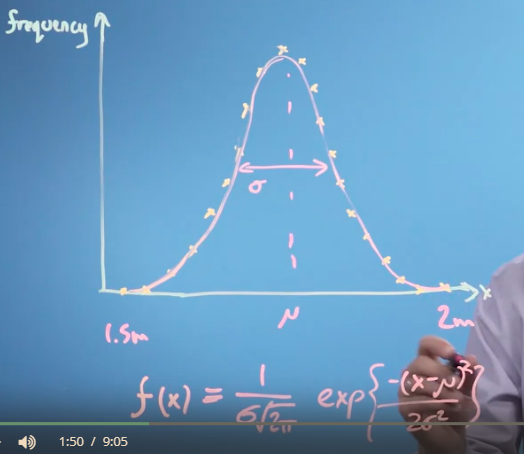 frequency
σ
x
1.5m μ 2m
f(x) = 1/(σ√2π) exp{-(x-μ)²/2σ²}
1:50 / 9:05